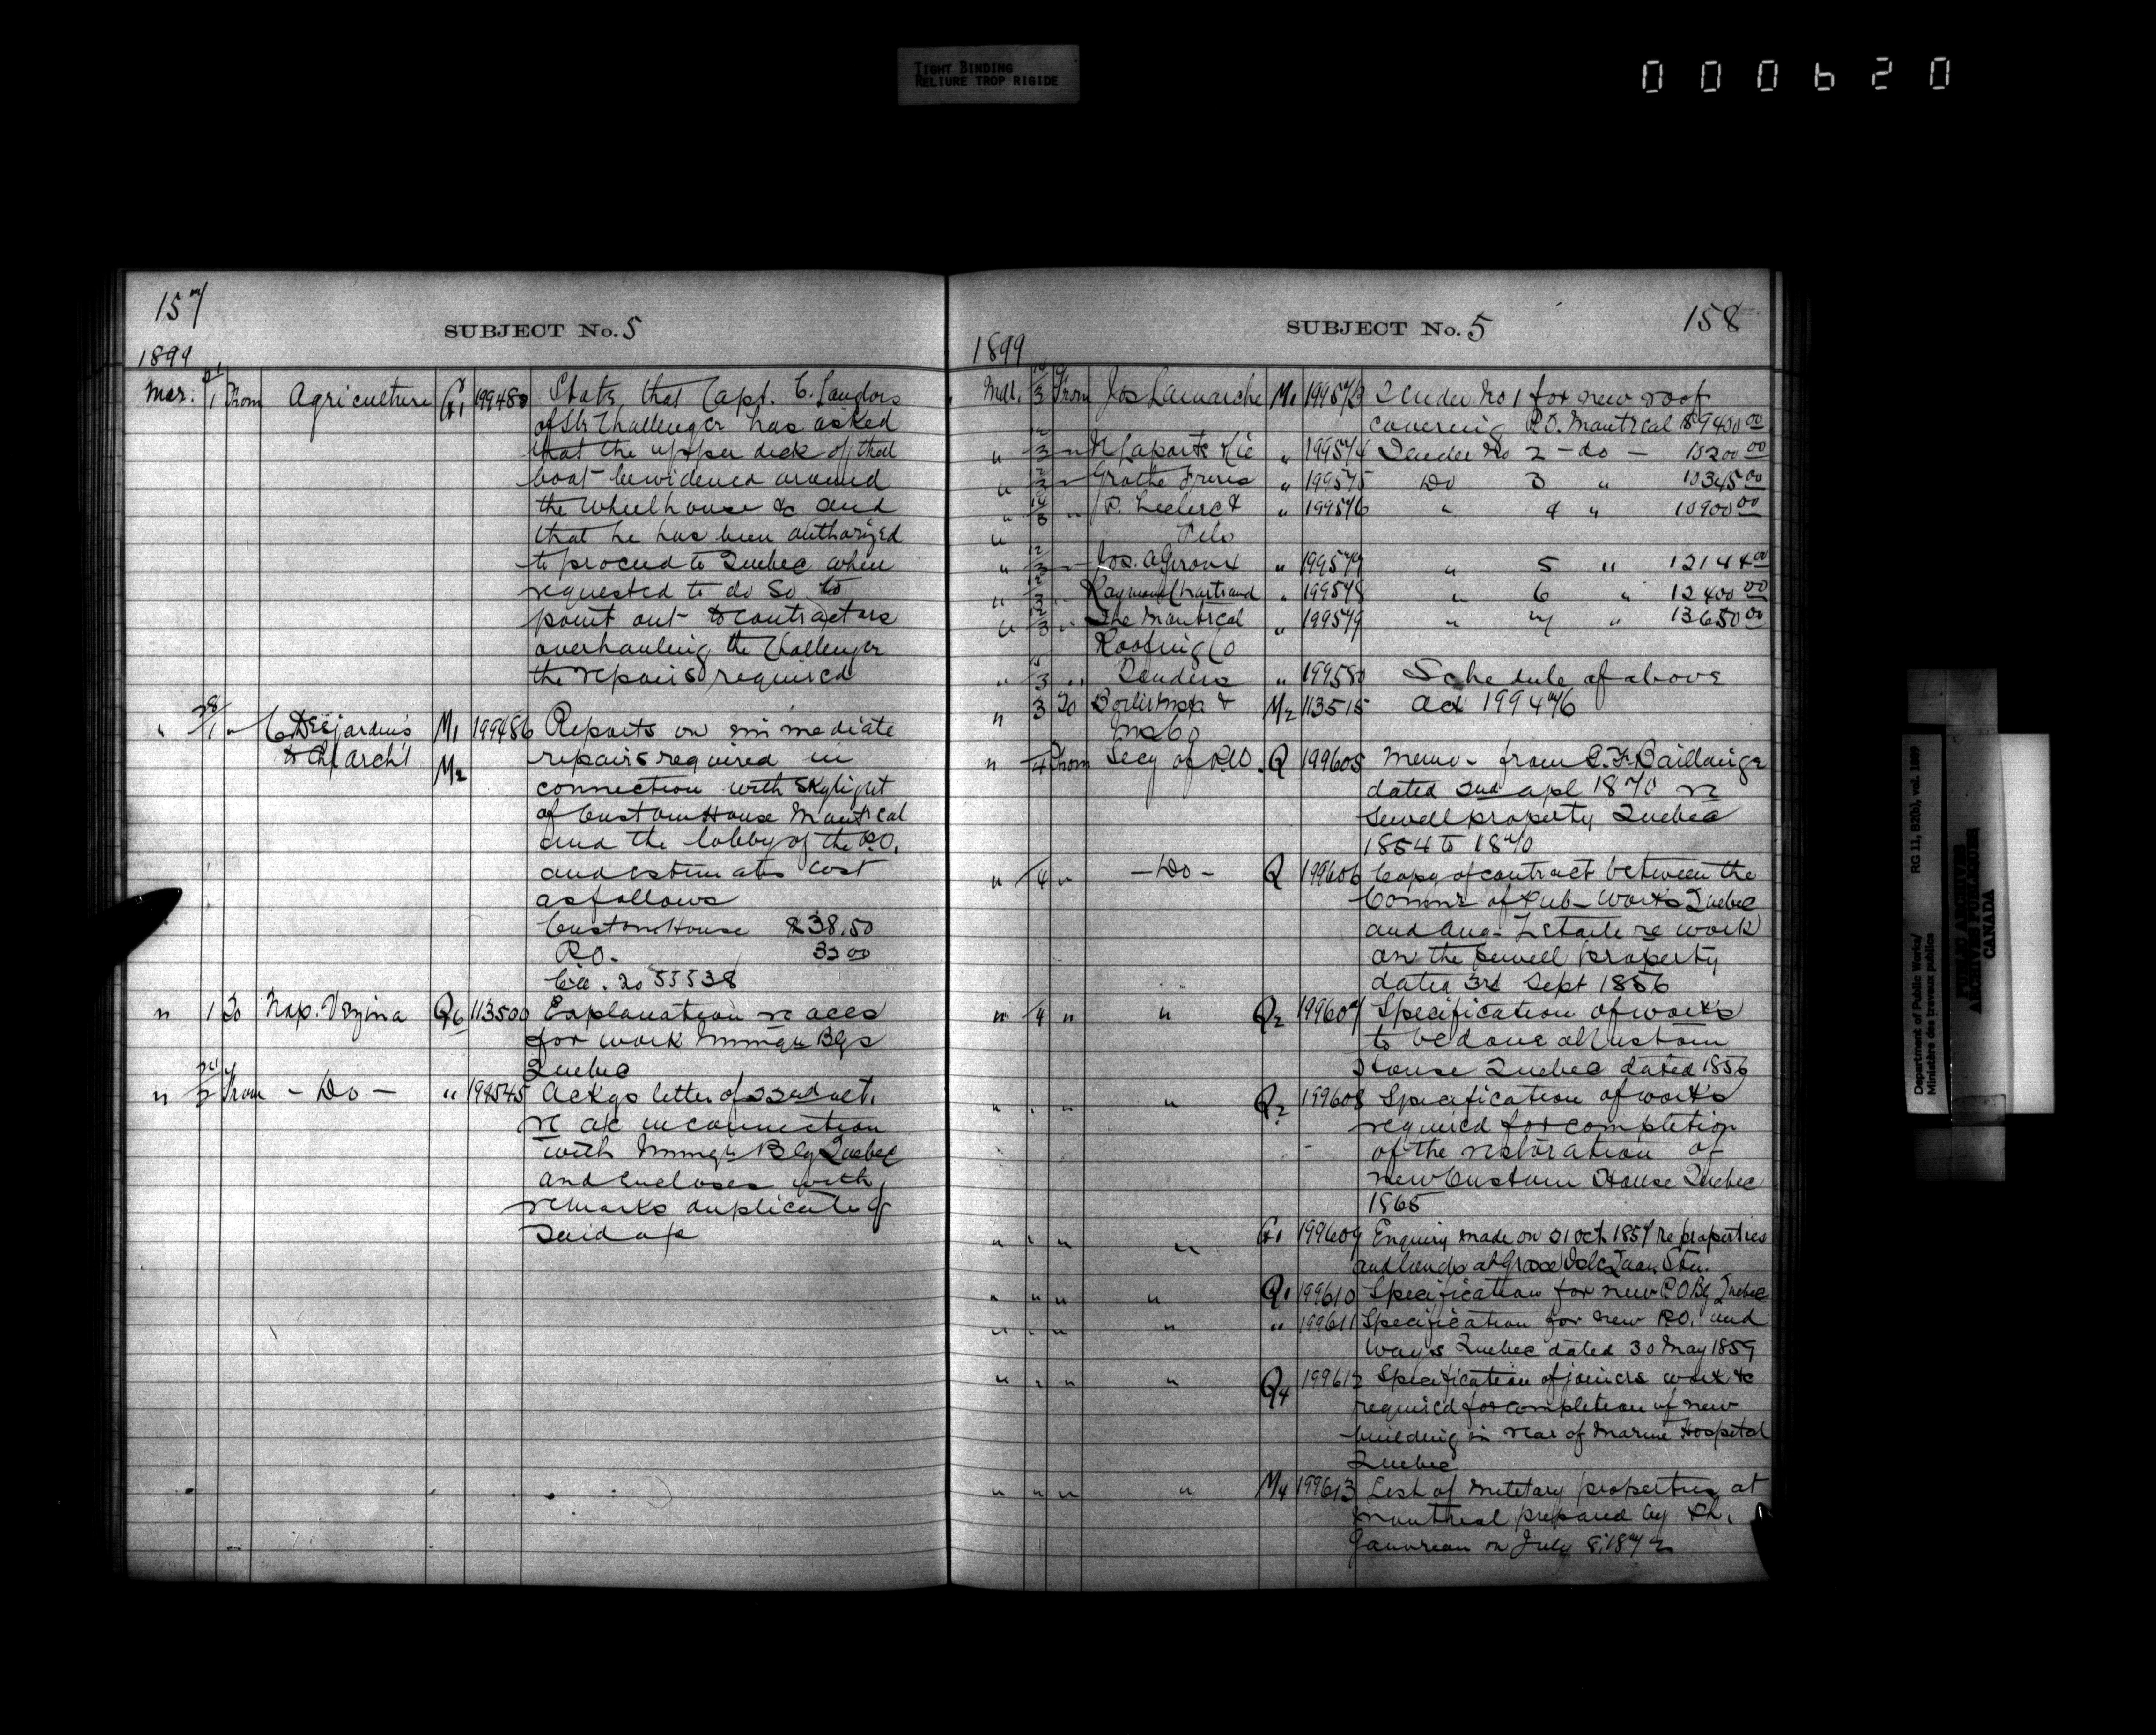 TIGHT BINDING
RELIURE TROP RIGIDE
000620
157
SUBJECT No. 5
1899
Mar. 1 From Agriculture G1 199480 States that Capt. C.
of Str Challenger has asked
that the upper deck of that
boat be widened around
the Wheelhouse &c and
that he has been authorized
to proceed to Quebec when
requested to do so to
point out to contractors
overhauling the Challenger
the repairs required
" 28/1 " C Desjardins M1 199486 Reports on immediate
& Chf Archt M2 repairs required in
connection with skylight
of Custom House Montreal
and the lobby of the P.O.
and estimates cost
as follows
Custom House $38.50
P.O. 32 00
55538
" 1 To Nap. Vezina Q6 113500 Explanation re accs
for work Immgn Bgs
Quebec
" From - Do - " 199545 Ackgs letter of 22nd ult.
re a/c in connection
with Immgn Blg Quebec
and encloses with
remarks duplicate of
said a/c
SUBJECT No. 5
158
1899
Mar. 3 From Jos Lamarche M1 199573 Tender No 1 for new roof
covering P.O. Montreal $9400 00
" 3 " N Laporte Cie " 199574 Tender No 2 - do - 10200 00
" 3 " Grothe Freres " 199575 Do 3 " 10345 00
" 3 " P. Leclerc & " 199576 " 4 " 10900 00
"
" 12/3 " Jos. A Giroux " 199577 " 5 " 12144 00
" 3 " Raymond Chartrand " 199578 " 6 " 12400 00
" 3 " The Montreal " 199579 " 7 " 13650 00
Roofing Co
" 3 " Tenders " 199580 Schedule of above
" 3 To Boiler Insp & M2 113515 Ack 199476
Ins Co
" /4 From Secy of P.W. Q 199605 Memo - from C. F. Baillairge
dated 2nd apl 1870 re
Sewell property Quebec
1854 to 1870
" /4 " - Do - Q 199606 Copy of contract between the
Commr of Pub - Works Quebec
and Aug - re work
on the Sewell property
dated 3rd Sept 1856
" /4 " " Q2 199607 Specification of works
to be done at Custom
House Quebec dated 1856
" " " " Q2 199608 Specification of works
required for completion
of the restoration of
new Custom House Quebec
1865
" " " " G1 199609 Enquiry made on 21 Oct 1857 re properties
and lands at Grosse Isle Quar. Stn.
" " " " Q1 199610 Specification for new P O Bg Quebec
" " " " " 199611 Specification for new P.O. and
Quebec dated 30 May 1859
" " " " Q4 199612 Specification of joiners work &c
required for completion of new
building in rear of Marine Hospital
Quebec
" " " " M4 199613 List of military properties at
Montreal prepared by Ph.
Gauvreau on July 8, 1872
Department of Public Works/ RG 11, B2(b), vol. 1889
Ministère des travaux publics
PUBLIC ARCHIVES
ARCHIVES PUBLIQUES
CANADA